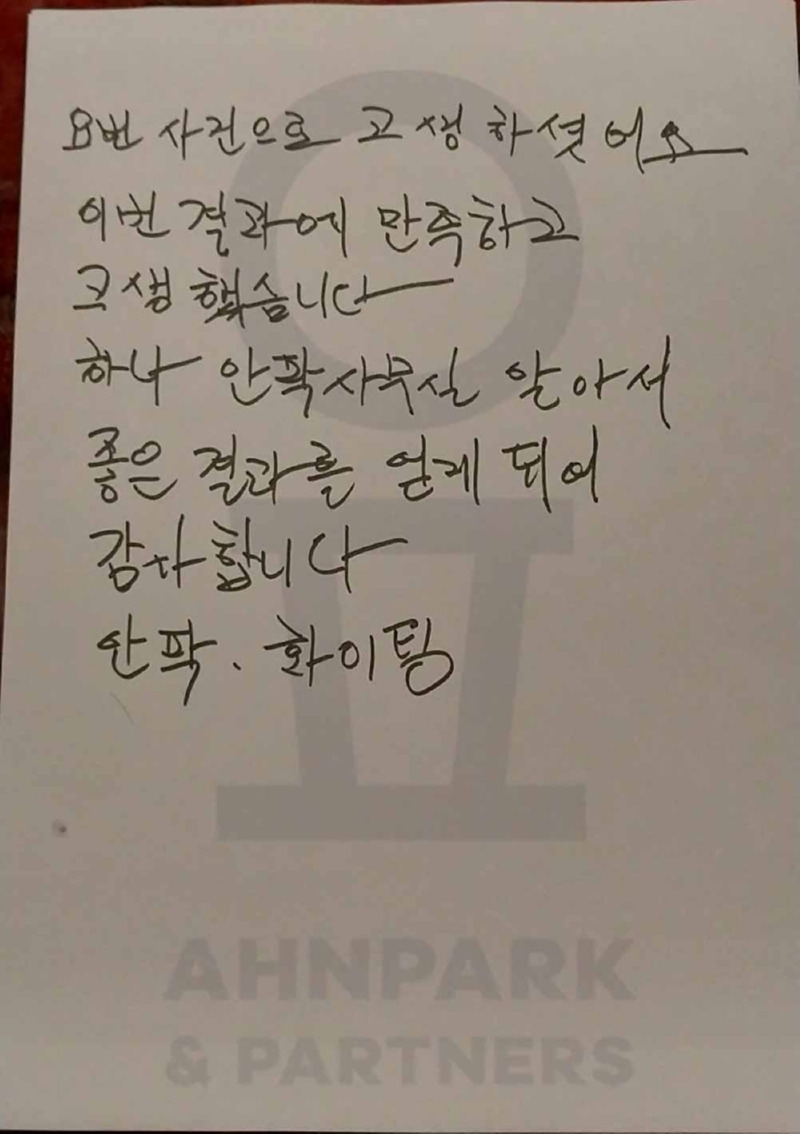 요번 사건으로 고생 하셧어요
이번 결과에 만족하고
고생 했습니다
하나 안팍사무실 알아서
좋은 결과를 얻게 되어
감사합니다
안팍. 화이팅
AHNPARK
& PARTNERS